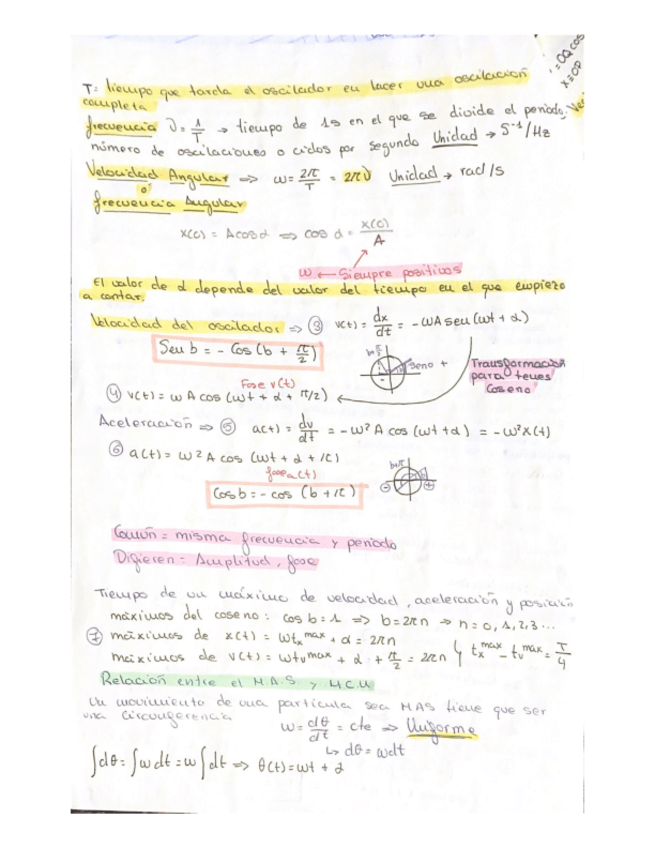 =OQ cos
x=OP
T= tiempo que tarda el oscilador en hacer una oscilación
completa
frecuencia ν = 1/T → tiempo de 1s en el que se divide el periodo.
número de oscilaciones o ciclos por segundo Unidad → S⁻¹/Hz
Velocidad Angular ⇒ ω = 2π/T = 2πν Unidad → rad/s
o
frecuencia Angular
x(0) = A cos α ⇒ cos α = x(0)/A
ω ← siempre positivos
El valor de α depende del valor del tiempo en el que empiezo
a contar.
Velocidad del oscilador ⇒ ③ v(t) = dx/dt = -ωA sen(ωt + α)
Sen b = - cos (b + π/2)
b+π/2
seno +
Transformación
para tener
Coseno
Fase v(t)
④ v(t) = ω A cos (ωt + α + π/2)
Aceleración ⇒ ⑤ a(t) = dv/dt = -ω² A cos (ωt + α) = -ω² x(t)
⑥ a(t) = ω² A cos (ωt + α + π)
fase a(t)
b+π
Cos b = - cos (b + π)
Común = misma frecuencia y periodo
Difieren = Amplitud, fase
Tiempo de un máximo de velocidad, aceleración y posición
máximos del coseno : cos b = 1 ⇒ b = 2πn ⇒ n = 0, 1, 2, 3 ...
⑦ máximos de x(t) = ωtₓ max + α = 2πn
máximos de v(t) = ωtᵥ max + α + π/2 = 2πn } tₓ max - tᵥ max = T/4
Relación entre el M.A.S. y M.C.U
Un movimiento de una partícula sea MAS tiene que ser
una circunferencia
ω = dθ/dt = cte ⇒ Uniforme
↳ dθ = ωdt
∫dθ = ∫ω dt = ω∫dt ⇒ θ(t) = ωt + α